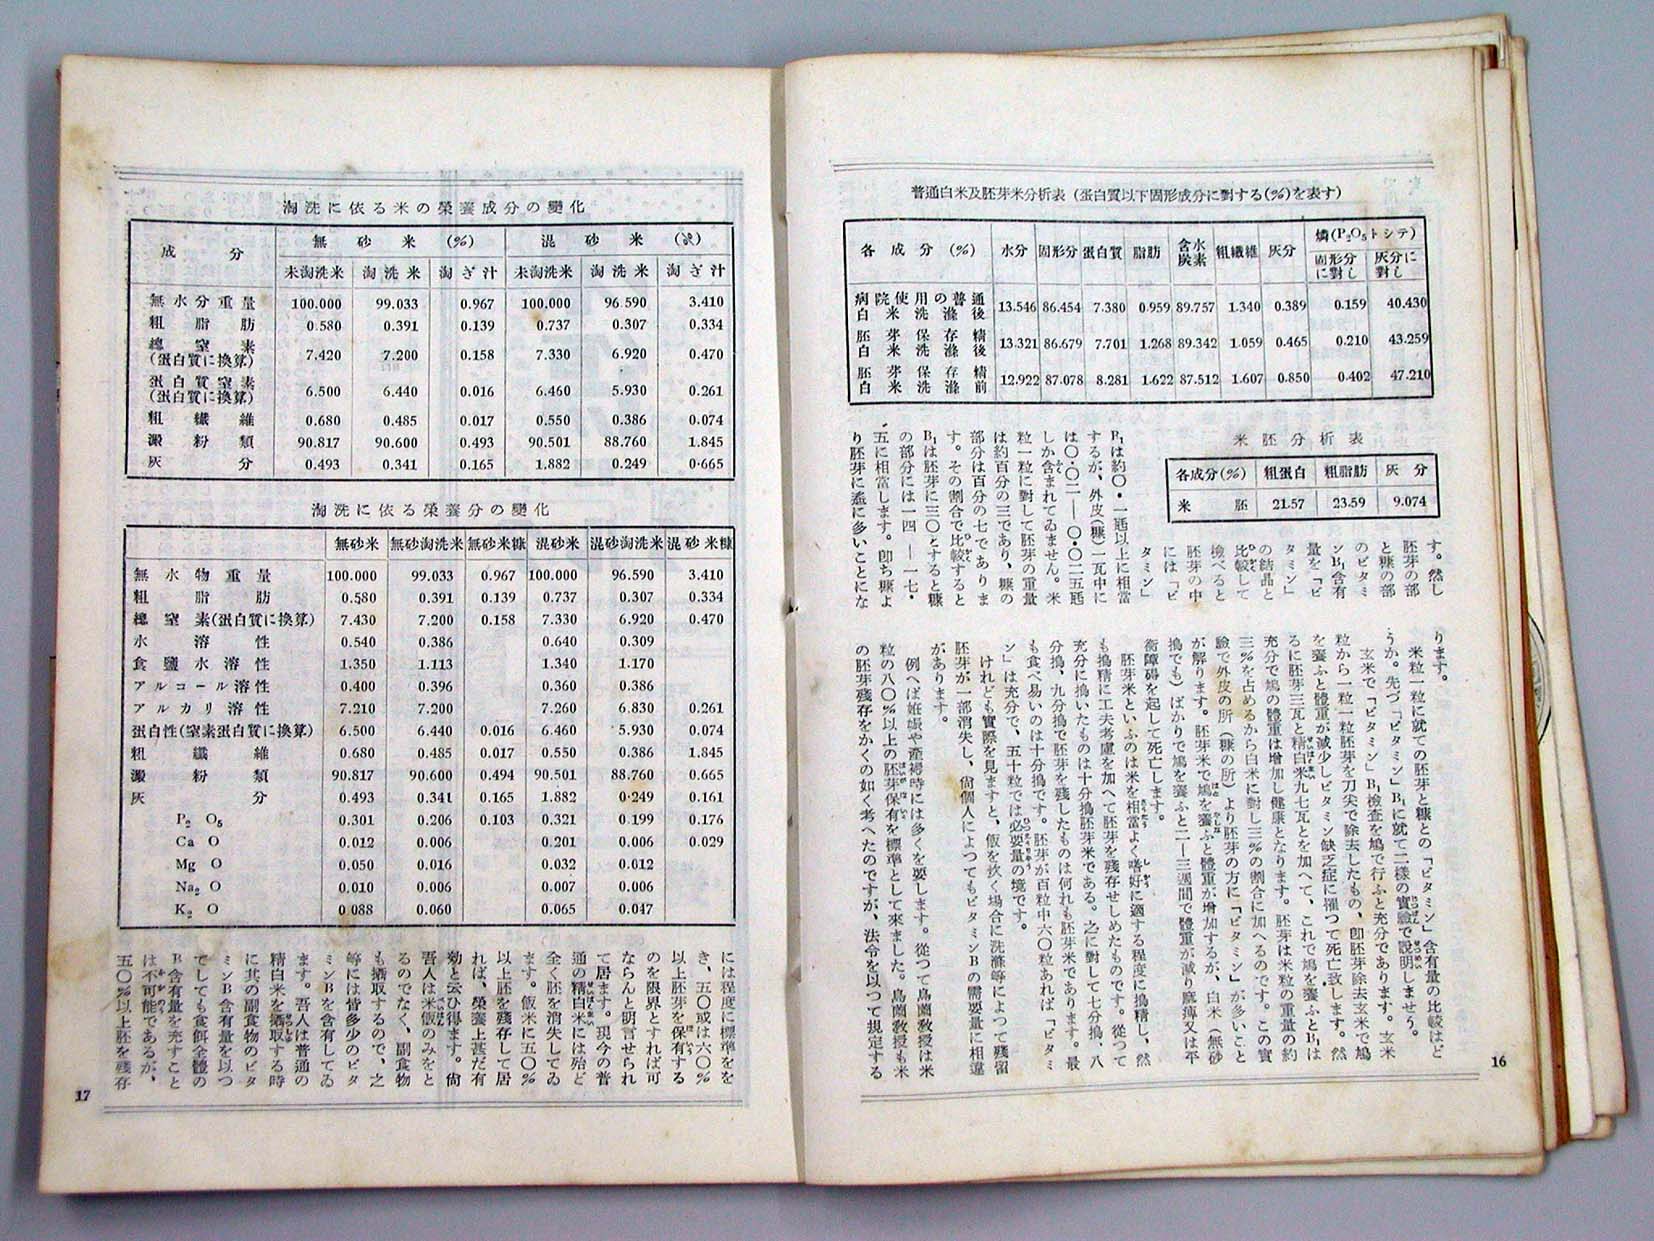 普通白米及胚芽米分析表（蛋白質以下固形成分に對する(%)を表す）
各成分(%) 水分 固形分 蛋白質 脂肪 含水炭素 粗纖維 灰分 燐(P₂O₅トシテ) 固形分に對し 灰分に對し
病院使用の普通白米洗滌後 13.546 86.454 7.380 0.959 89.757 1.340 0.389 0.159 40.430
胚芽保存精白米洗滌後 13.321 86.679 7.701 1.268 89.342 1.059 0.465 0.210 43.259
胚芽保存精白米洗滌前 12.922 87.078 8.281 1.622 87.512 1.607 0.850 0.402 47.210
米胚分析表
各成分(%) 粗蛋白 粗脂肪 灰分
米胚 21.57 23.59 9.074
す。然し
胚芽の部
と糠の部
のビタミ
ンB₁含有
量を「ビ
タミン」
の結晶と
比較して
檢べると
胚芽の中
には「ビ
タミン」
B₁は約〇・一瓱以上に相當
するが、外皮(糠)一瓦中に
は〇・〇二一―〇・〇二五瓱
しか含まれてゐません。米
粒一粒に對して胚芽の重量
は約百分の三であり、糠の
部分は百分の七でありま
す。その割合で比較すると
B₁は胚芽に三〇とすると糠
の部分には一四―一七・
五に相當します。卽ち糠よ
り胚芽に遙に多いことにな
ります。
米粒一粒に就ての胚芽と糠との「ビタミン」含有量の比較はど
うか。先づ「ビタミン」B₁に就て二樣の實驗で說明しませう。
玄米で「ビタミン」B₁檢査を鳩で行ふと充分であります。玄米
粒から一粒一粒胚芽を刀尖で除去したもの、卽胚芽除去玄米で鳩
を養ふと體重が減少しビタミン缺乏症に罹つて死亡致します。然
るに胚芽三瓦と精白米九七瓦とを加へて、これで鳩を養ふとB₁は
充分で鳩の體重は增加し健康となります。胚芽は米粒の重量の約
三%を占めるから白米に對し三%の割合に加へるのです。この實
驗で外皮の所(糠の所)より胚芽の方に「ビタミン」が多いこと
が解ります。胚芽米で鳩を養ふと體重が增加するが、白米(無砂
搗でも)ばかりで鳩を養ふと二―三週間で體重が減り麻痺又は平
衡障碍を起して死亡します。
胚芽米といふのは米を相當よく嗜好に適する程度に搗精し、然
も搗精に工夫考慮を加へて胚芽を殘存せしめたものです。從つて
充分に搗いたものは十分搗胚芽米である。之に對して七分搗、八
分搗、九分搗で胚芽を殘したものは何れも胚芽米であります。最
も食べ易いのは十分搗です。胚芽が百粒中六〇粒あれば「ビタミ
ン」は充分で、五十粒では必要量の境です。
けれども實際を見ますと、飯を炊く場合に洗滌等によつて殘留
胚芽が一部消失し、尙個人によつてもビタミンBの需要量に相違
があります。
例へば姙娠や產褥時には多くを要します。從つて島薗敎授は米
粒の八〇%以上の胚芽保有を標準として來ました。島薗敎授も米
の胚芽殘存をかくの如く考へたのですが、法令を以つて規定する
16
淘洗に依る米の榮養成分の變化
成分 無砂米 (%) 混砂米 (%)
未淘洗米 淘洗米 淘ぎ汁 未淘洗米 淘洗米 淘ぎ汁
無水分重量 100.000 99.033 0.967 100.000 96.590 3.410
粗脂肪 0.580 0.391 0.139 0.737 0.307 0.334
總窒素(蛋白質に換算) 7.420 7.200 0.158 7.330 6.920 0.470
蛋白質窒素(蛋白質に換算) 6.500 6.440 0.016 6.460 5.930 0.261
粗纖維 0.680 0.485 0.017 0.550 0.386 0.074
澱粉類 90.817 90.600 0.493 90.501 88.760 1.845
灰分 0.493 0.341 0.165 1.882 0.249 0.665
淘洗に依る榮養分の變化
無砂米 無砂淘洗米 無砂米糠 混砂米 混砂淘洗米 混砂米糠
無水物重量 100.000 99.033 0.967 100.000 96.590 3.410
粗脂肪 0.580 0.391 0.139 0.737 0.307 0.334
總窒素(蛋白質に換算) 7.430 7.200 0.158 7.330 6.920 0.470
水溶性 0.540 0.386 0.640 0.309
食鹽水溶性 1.350 1.113 1.340 1.170
アルコール溶性 0.400 0.396 0.360 0.386
アルカリ溶性 7.210 7.200 7.260 6.830 0.261
蛋白性(窒素蛋白質に換算) 6.500 6.440 0.016 6.460 5.930 0.074
粗纖維 0.680 0.485 0.017 0.550 0.386 1.845
澱粉類 90.817 90.600 0.494 90.501 88.760 0.665
灰分 0.493 0.341 0.165 1.882 0.249 0.161
P₂O₅ 0.301 0.206 0.103 0.321 0.199 0.176
CaO 0.012 0.006 0.201 0.006 0.029
MgO 0.050 0.016 0.032 0.012
Na₂O 0.010 0.006 0.007 0.006
K₂O 0.088 0.060 0.065 0.047
には程度に標準をを
き、五〇或は六〇%
以上胚芽を保有する
のを限界とすれば可
ならんと明言せられ
て居ます。現今の普
通の精白米には殆ど
全く胚を消失してゐ
ます。飯米に五〇%
以上胚を殘存して居
れば、榮養上甚だ有
効と云ひ得ます。尙
吾人は米飯のみをと
るのでなく、副食物
も攝取するので、之
等には皆多少のビタ
ミンBを含有してゐ
ます。吾人は普通の
精白米を攝取する時
に其の副食物のビタ
ミンB含有量を以つ
てしても食餌全體の
B含有量を充すこと
は不可能であるが、
五〇%以上胚を殘存
17